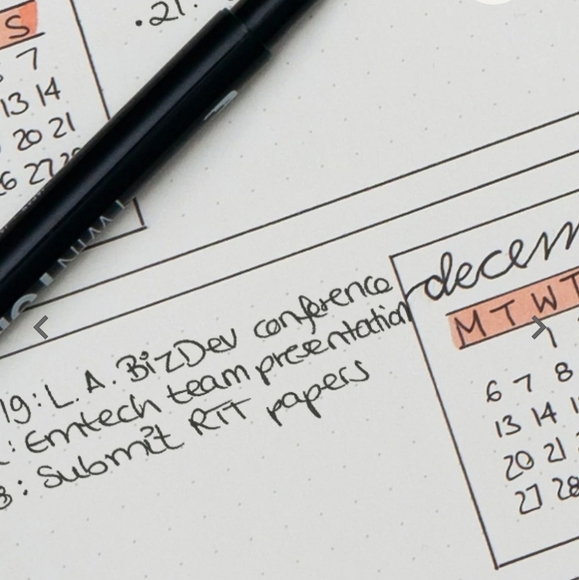 ·21.
S
7
13 14
20 21
6 27 28
TWIN
19: L.A. BizDev conference
: Emtech team presentation
3: Submit RIT papers
decem
M T W T
1
6 7 8
13 14 1
20 21
27 28